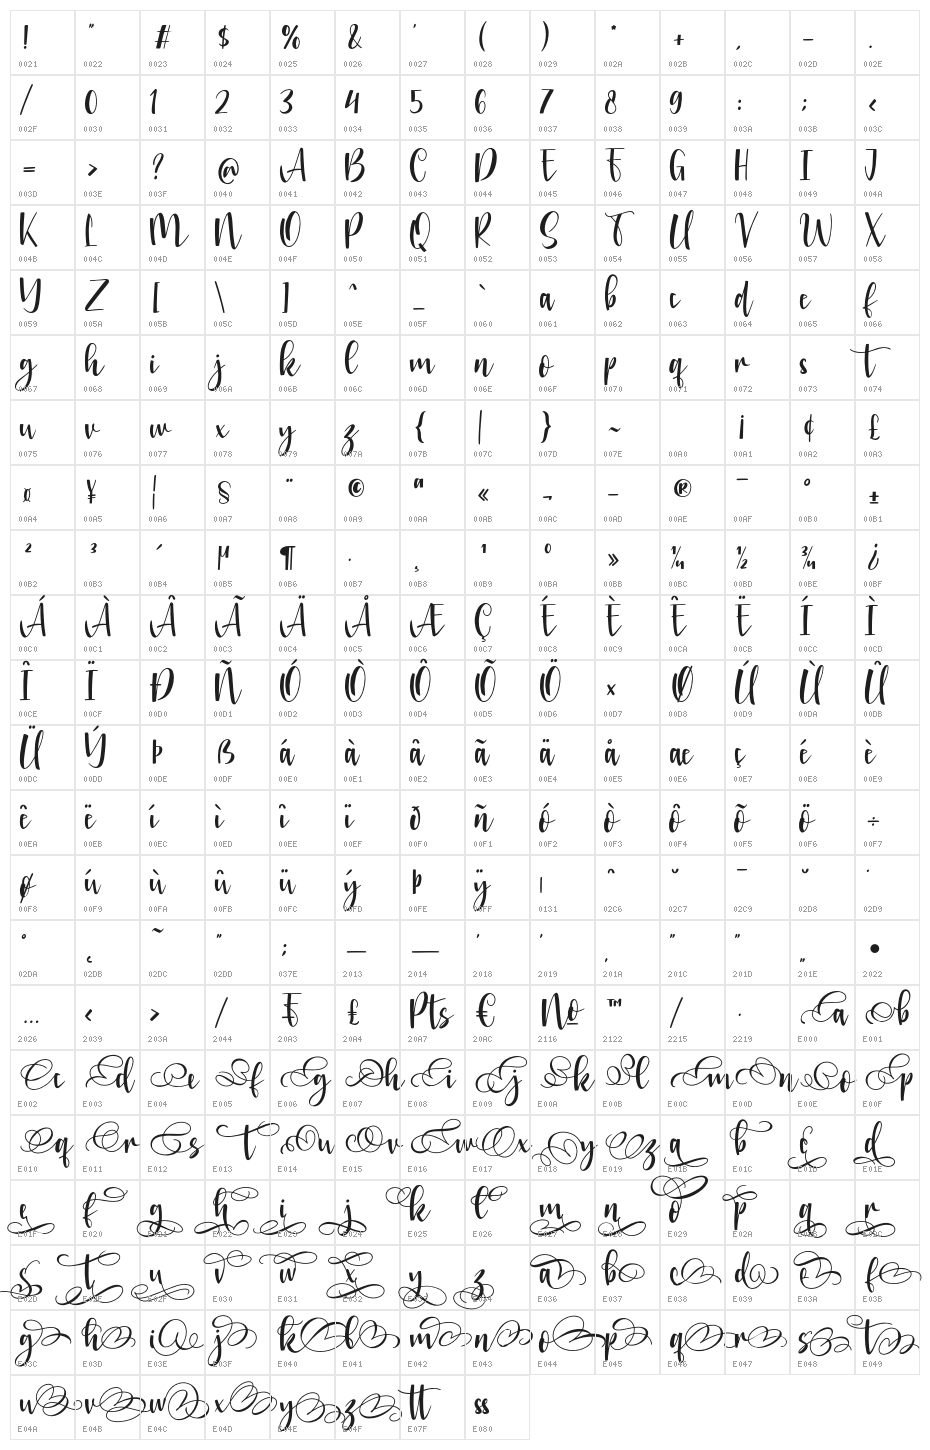 ! " # $ % & ' ( ) * + , - .
0021 0022 0023 0024 0025 0026 0027 0028 0029 002A 002B 002C 002D 002E
/ 0 1 2 3 4 5 6 7 8 9 : ; <
002F 0030 0031 0032 0033 0034 0035 0036 0037 0038 0039 003A 003B 003C
= > ? @ A B C D E F G H I J
003D 003E 003F 0040 0041 0042 0043 0044 0045 0046 0047 0048 0049 004A
K L M N O P Q R S T U V W X
004B 004C 004D 004E 004F 0050 0051 0052 0053 0054 0055 0056 0057 0058
Y Z [ \ ] ^ _ ` a b c d e f
0059 005A 005B 005C 005D 005E 005F 0060 0061 0062 0063 0064 0065 0066
g h i j k l m n o p q r s t
0067 0068 0069 006A 006B 006C 006D 006E 006F 0070 0071 0072 0073 0074
u v w x y z { | } ~ ¡ ¢ £
0075 0076 0077 0078 0079 007A 007B 007C 007D 007E 00A0 00A1 00A2 00A3
¤ ¥ ¦ § ¨ © ª « ¬ - ® ¯ ° ±
00A4 00A5 00A6 00A7 00A8 00A9 00AA 00AB 00AC 00AD 00AE 00AF 00B0 00B1
² ³ ´ µ ¶ · ¸ ¹ º » ¼ ½ ¾ ¿
00B2 00B3 00B4 00B5 00B6 00B7 00B8 00B9 00BA 00BB 00BC 00BD 00BE 00BF
Á À Â Ã Ä Å Æ Ç É È Ê Ë Í Ì
00C0 00C1 00C2 00C3 00C4 00C5 00C6 00C7 00C8 00C9 00CA 00CB 00CC 00CD
Î Ï Ð Ñ Ó Ò Ô Õ Ö × Ø Ú Ù Û
00CE 00CF 00D0 00D1 00D2 00D3 00D4 00D5 00D6 00D7 00D8 00D9 00DA 00DB
Ü Ý Þ ß á à â ã ä å æ ç é è
00DC 00DD 00DE 00DF 00E0 00E1 00E2 00E3 00E4 00E5 00E6 00E7 00E8 00E9
ê ë í ì î ï ð ñ ó ò ô õ ö ÷
00EA 00EB 00EC 00ED 00EE 00EF 00F0 00F1 00F2 00F3 00F4 00F5 00F6 00F7
ø ú ù û ü ý þ ÿ ı ˆ ˇ ˉ ˘ ˙
00F8 00F9 00FA 00FB 00FC 00FD 00FE 00FF 0131 02C6 02C7 02C9 02D8 02D9
˚ ˛ ˜ ˝ ; – — ‘ ’ ‚ “ ” „ •
02DA 02DB 02DC 02DD 037E 2013 2014 2018 2019 201A 201C 201D 201E 2022
… ‹ › ⁄ ₣ ₤ Pts € № ™ ∕ ∙ a b
2026 2039 203A 2044 20A3 20A4 20A7 20AC 2116 2122 2215 2219 E000 E001
c d e f g h i j k l m n o p
E002 E003 E004 E005 E006 E007 E008 E009 E00A E00B E00C E00D E00E E00F
q r s t u v w x y z a b c d
E010 E011 E012 E013 E014 E015 E016 E017 E018 E019 E01B E01C E01D E01E
e f g h i j k l m n o p q r
E01F E020 E021 E022 E023 E024 E025 E026 E027 E028 E029 E02A
s t u v w x y z a b c d e f
E02D E02E E02F E030 E031 E032 E033 E034 E036 E037 E038 E039 E03A E03B
g h i j k l m n o p q r s t
E03C E03D E03E E03F E040 E041 E042 E043 E044 E045 E046 E047 E048 E049
u v w x y z tt ss
E04A E04B E04C E04D E04E E04F E07F E080